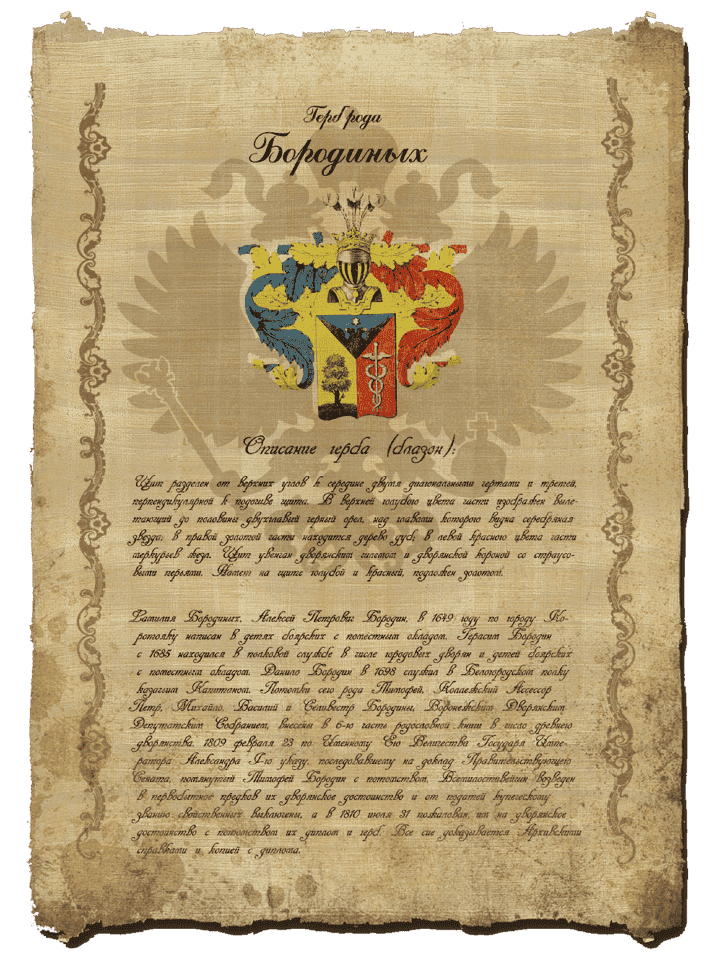 Герб рода
Бородиных
Описание герба (блазон):
Щит разделен от верхних углов к середине двумя диагональными чертами и третей,
перпендикулярной к подошве щита. В верхней голубого цвета части изображен выле-
тающий до половины двухглавый черный орел, над главами которого видна серебряная
звезда; в правой золотой части находится дерево дуб; в левой красного цвета части
меркурьев жезл. Щит увенчан дворянским шлемом и дворянской короной со страусо-
выми перьями. Намет на щите голубой и красный, подложен золотом.
Фамилия Бородиных. Алексей Петрович Бородин, в 1649 году по городу Ко-
ротояку написан в детях боярских с поместным окладом. Герасим Бородин
с 1685 находился в полковой службе в числе городовых дворян и детей боярских
с поместным окладом. Данило Бородин в 1698 служил в Белогородском полку
казачьим Капитаном. Потомки сего рода Тимофей, Коллежский Ассесор
Петр, Михайло, Василий и Селивестр Бородины, Воронежским Дворянским
Депутатским Собранием, внесены в 6-ю часть родословной книги в число древнего
дворянства. 1809 февраля 23 по Именному Его Величества Государя Импе-
ратора Александра I-го указу, последовавшему на доклад Правительствующего
Сената, помянутый Тимофей Бородин с потомством, Всемилостивейши возведен
в первобытное предков их дворянское достоинство и от податей купеческому
званию свойственных выключены, а в 1810 июля 31 пожалован им на дворянское
достоинство с потомством их диплом и герб. Все сие доказывается Архивскими
справками и копией с диплома.